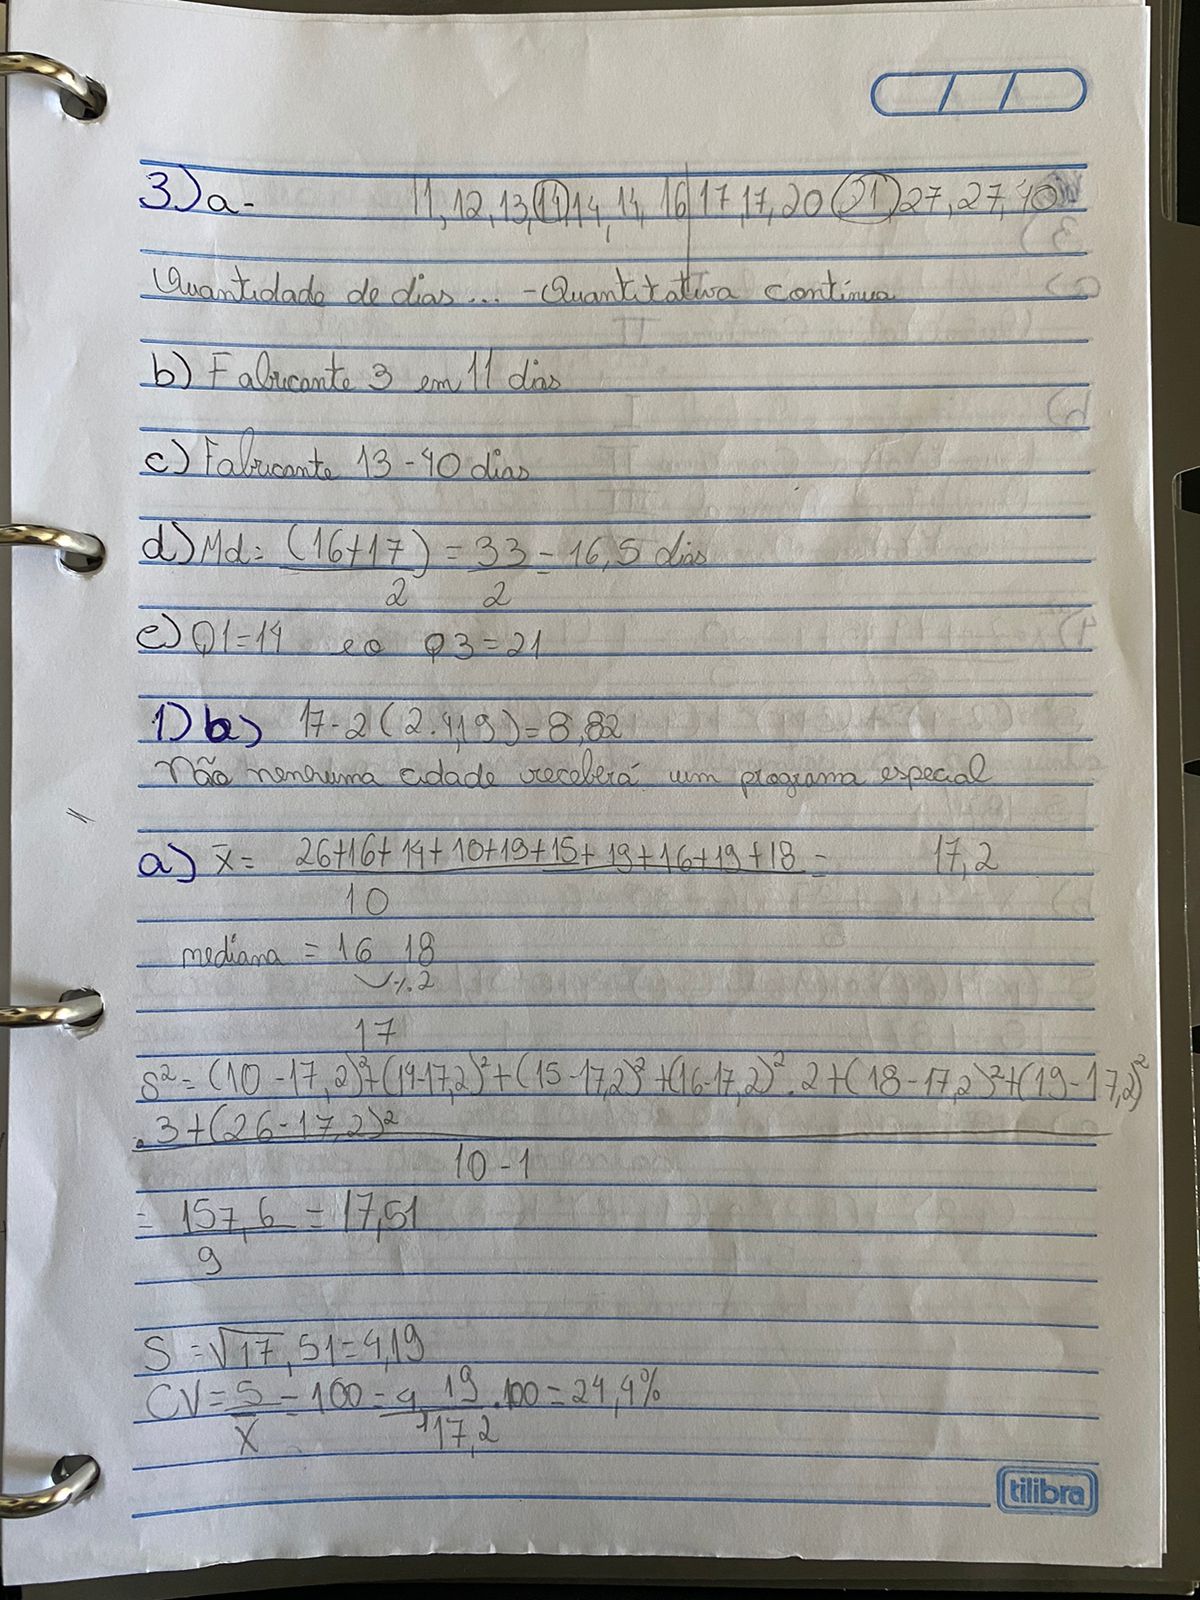 3.) a- 11, 12, 13, 14, 14, 14, 16 | 17, 17, 20 21 27, 27, 40
Quantidade de dias... - Quantitativa contínua
b) Fabricante 3 em 11 dias
c) Fabricante 13 - 40 dias
d) Md = (16+17) = 33 = 16,5 dias
2 2
e) Q1=14 e o Q3=21
1) b) 17-2(2.4,19)=8,82
Não nenhuma cidade receberá um programa especial
a) x̄ = 26+16+14+10+19+15+19+16+19+18 = 17,2
10
mediana = 16 18
2
17
S² = (10-17,2)²+(14-17,2)²+(15-17,2)²+(16-17,2)².2+(18-17,2)²+(19-17,2)²
.3+(26-17,2)²
10-1
= 157,6 = 17,51
9
S = √17,51 = 4,19
CV = S = 100 = 4,19 .100 = 24,4%
x̄ 17,2
tilibra